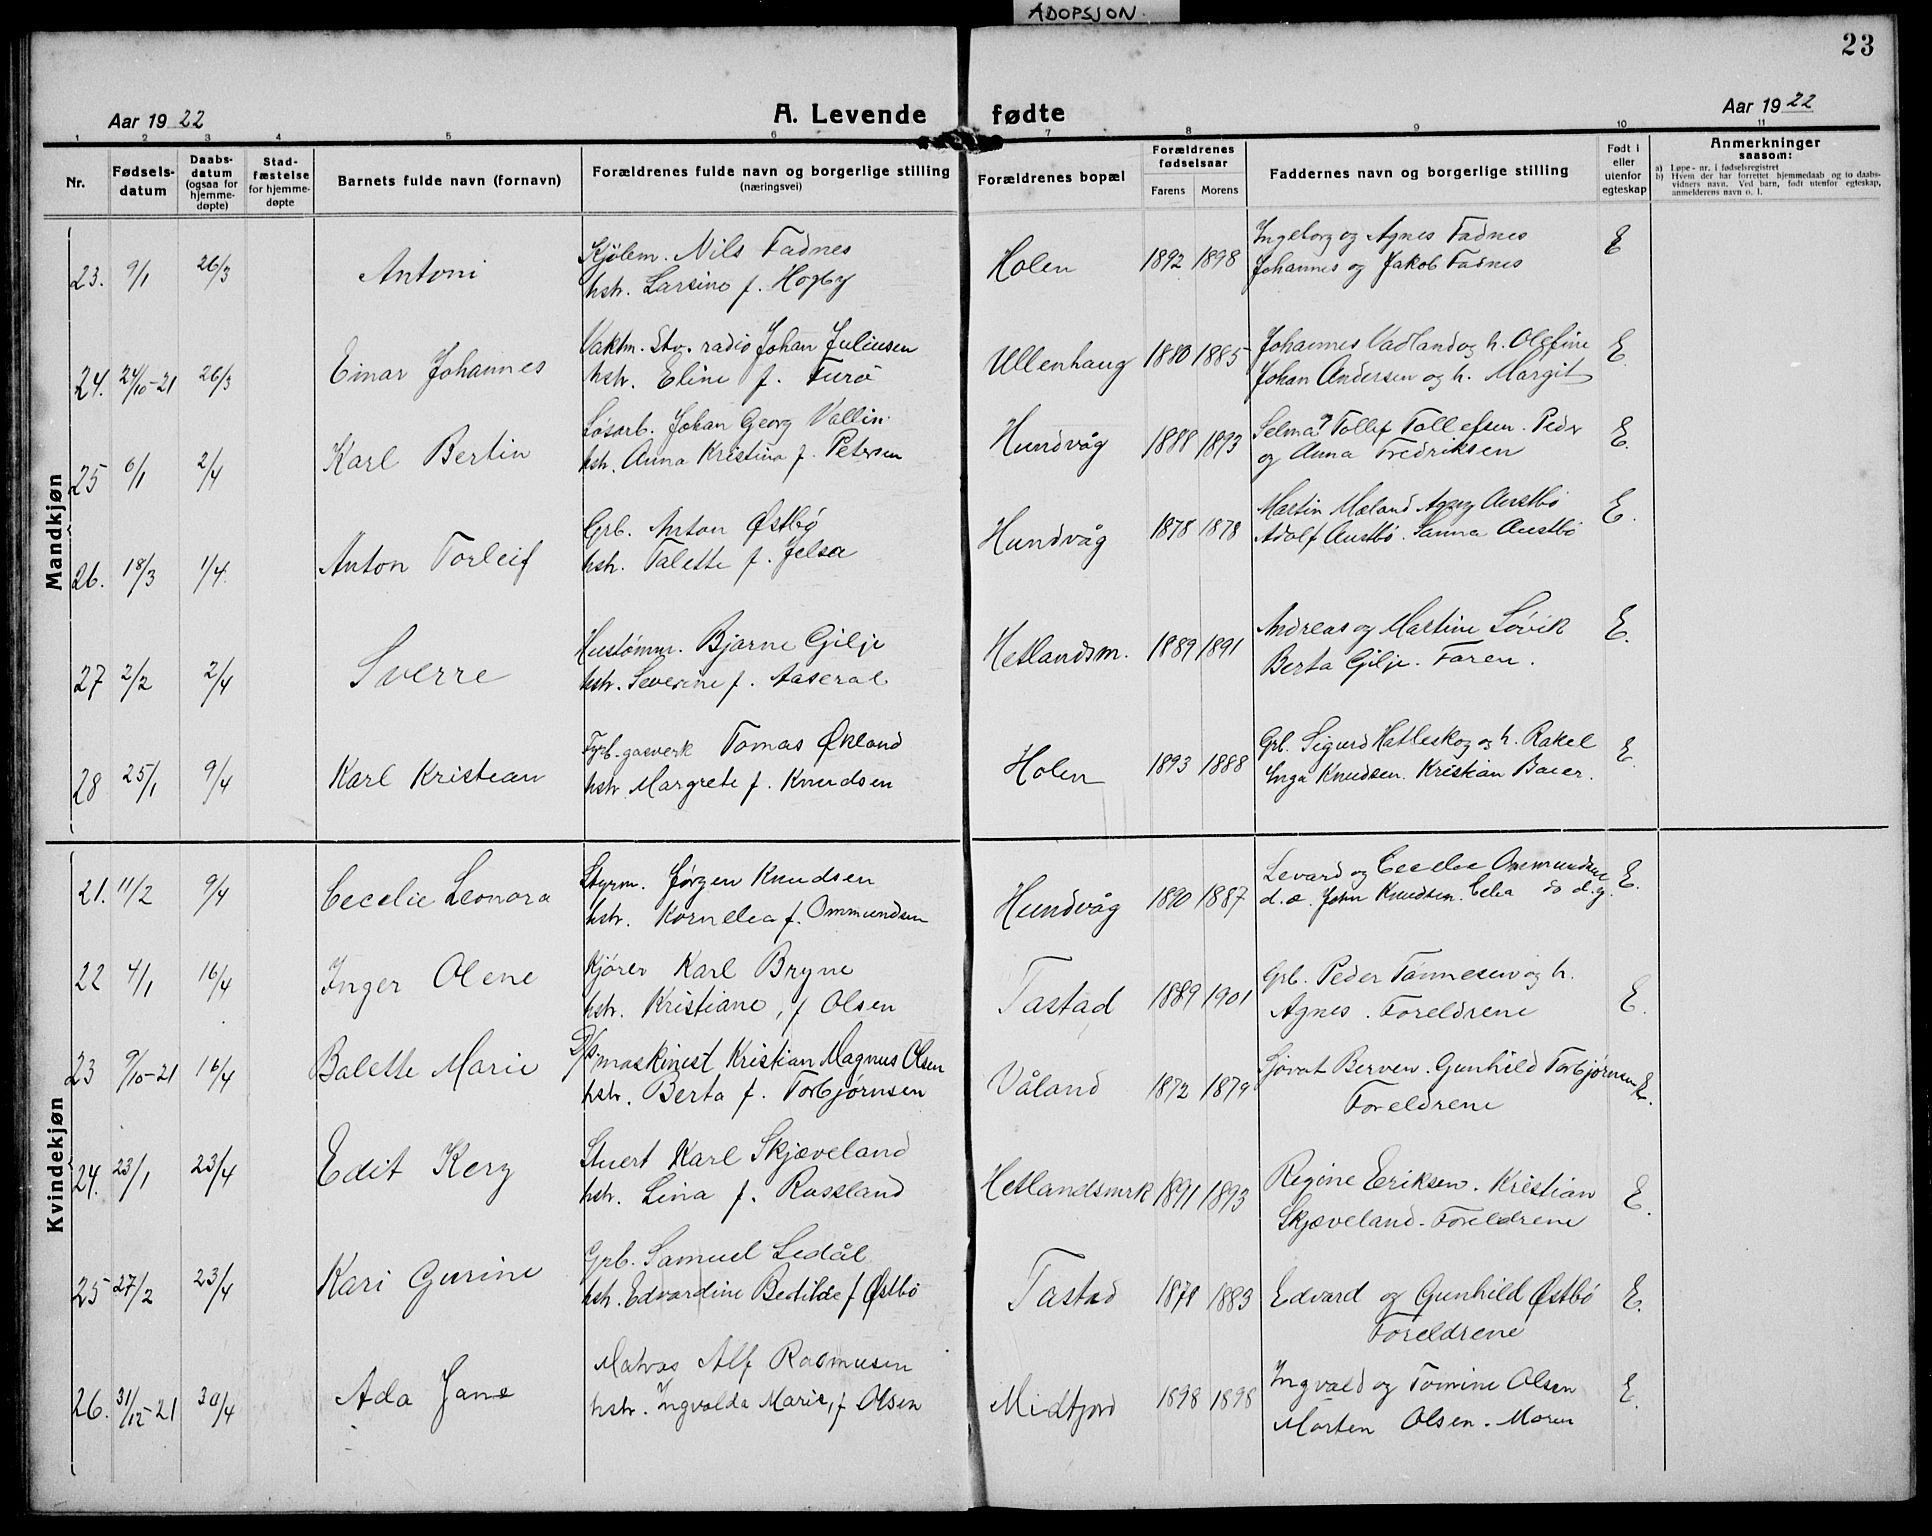 ADOPSJON.
23
Aar 1922
A. Levende fødte
Aar 1922
1 2 3 4 5 6 7 8 9 10 11
Nr.
Fødsels-
datum
Daabs-
datum
(ogsaa for
hjemme-
døpte)
Stad-
fæstelse
for hjemme-
døpte
Barnets fulde navn (fornavn)
Forældrenes fulde navn og borgerlige stilling
(næringsvei)
Forældrenes bopæl
Forældrenes
fødselsaar
Farens Morens
Faddernes navn og borgerlige stilling
Født i
eller
utenfor
egteskap
Anmerkninger
saasom:
a) Løpe-nr. i fødselsregistret
b) Hvem der har forrettet hjemmedaab og to daabs-
vidners navn. Ved barn, født utenfor egteskap,
anmelderens navn o. l.
Mandkjøn
23. 9/1 26/3 Antoni
Kjølem. Nils Fadnes
hstr. Larsine f. Hogby
Holen 1892 1898
Ingeborg og Agnes Fadnes
Johannes og Jakob Fadnes
E
24. 24/10-21 26/3 Einar Johannes
Vaktm. Stv. radio Johan Juliusen
hstr. Eline f. Furø
Ullenhaug 1880 1885
Johannes Vadland og h. Olefine
Johan Andersen og h. Margit
E.
25 6/1 2/4 Karl Bertin
Løsarb. Johan Georg Vallin
hstr. Anna Kristina f. Petersen
Hundvåg 1888 1893
Selma og Tollef Tollefsen. Peder
og Anna Fredriksen
E.
26. 18/3 1/4. Anton Torleif
Grb. Anton Østbø
hstr. Talette f. Jelsa
Hundvåg 1878 1878
Martin Mæland Agny Austbø
Adolf Austbø. Sanna Austbø
E.
27 2/2 2/4 Sverre
Hustømm. Bjarne Gilje
hstr. Severine f. Aaseral
Hetlandsm. 1889 1891
Andreas og Martine Løvik
Berta Gilje. Faren.
E.
28 25/1 9/4 Karl Kristian
Fyrb. gasverk Tomas Økland
hstr Margrete f. Knudsen
Holen 1893 1888
Grb. Sigurd Hatleskog og h. Rakel
Inga Knudsen. Kristian Baier.
E.
Kvindekjøn
21. 11/2 9/4 Cecelie Leonora
Styrm. Jørgen Knudsen
hstr. Kornelia f. Ommundsen
Hundvåg 1890 1887
Levard og Cecelie Ommundsen
d. æ. John Knudsen. Celia do d.y.
E.
22 4/1 16/4 Inger Olene
Kjører Karl Bryne
hstr. Kristiane, f Olsen
Tastad 1889 1901
Grb. Peder Tønnesen og h.
Agnes. Foreldrene
E.
23 9/10-21 16/4 Balette Marie
D/s maskinist Kristian Magnus Olsen
hstr. Berta f. Torbjørnsen
Våland 1872 1879
Sjovat Berven. Gunhild Torbjørnsen
Foreldrene
E.
24. 23/1 23/4 Edit Kery
Stuert Karl Skjæveland
hstr. Lina f. Rossland
Hetlandsmrk 1891 1893
Regine Eriksen. Kristian
Skjæveland. Foreldrene
E.
25 27/2 23/4 Kari Gurine
Grb. Samuel Ledål
hstr. Edvardine Betilde f Østbø
Tastad 1878 1883
Edvard og Gunhild Østbø
Foreldrene
E.
26. 31/12-21 30/4 Ada Jane
Matros Alf Rasmusen
hstr. Ingvalda Marie, f Olsen
Midtjord 1898 1898
Ingvald og Tomine Olsen
Morten Olsen. Moren
E.